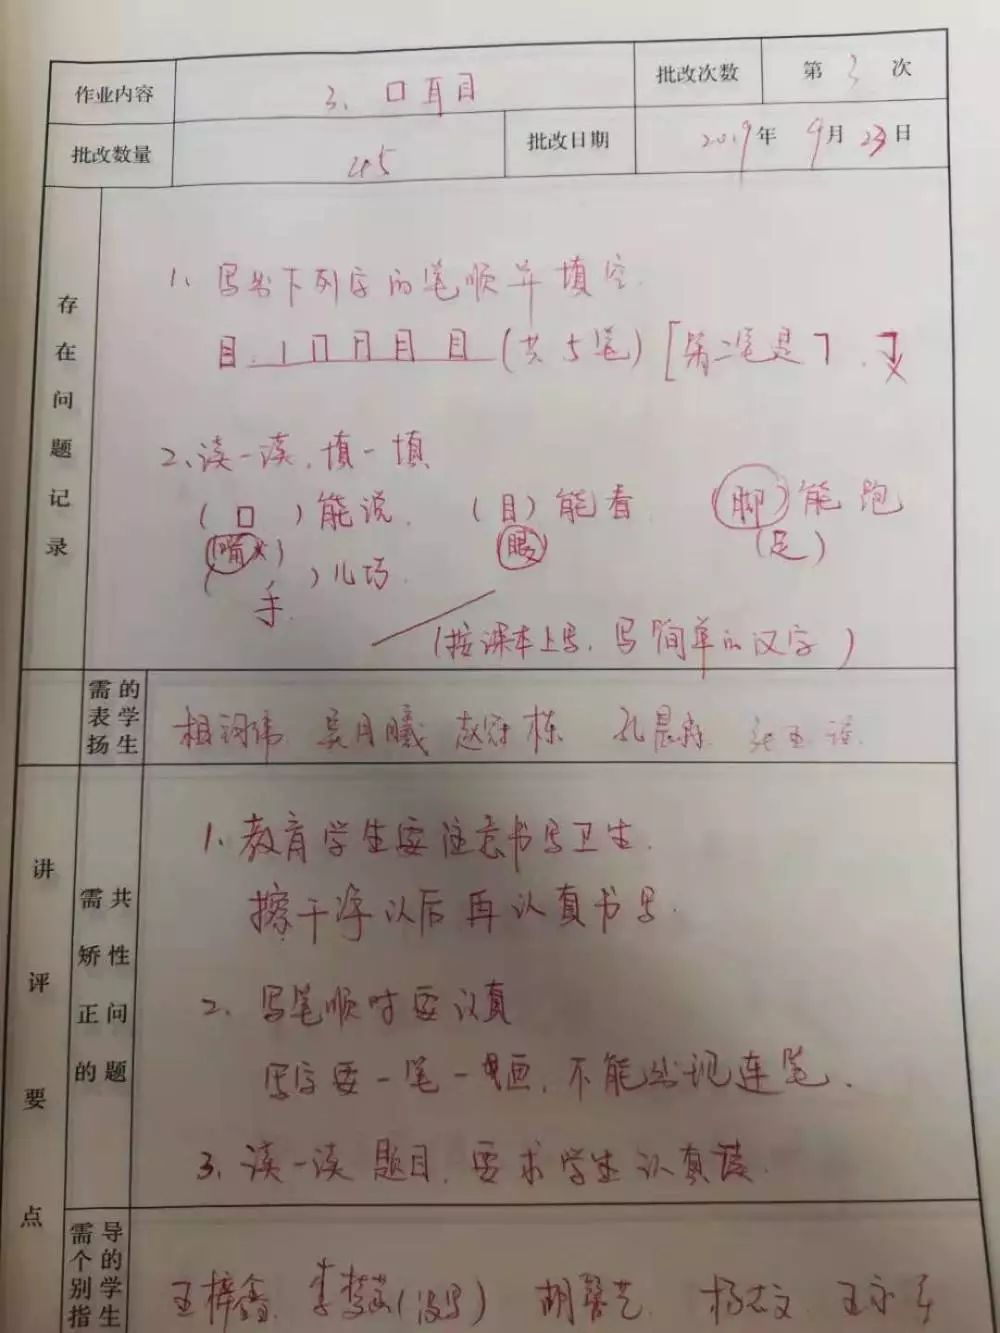 作业内容 3、口耳目 批改次数 第3次
批改数量 45 批改日期 2019年9月23日
存在问题记录
1、写出下列字的笔顺并填空.
目.丨冂月目目(共5笔)[第二笔是㇕.
2、读一读.填一填
(口)能说. (目)能看. (脚)能跑
(嘴×) 眼 (足)
( )儿巧.
手.
(按课本上写.写简单的汉字)
需表扬的学生
吴月曦 赵冠栋 孔晨
讲评要点
需矫正的共性问题
1、教育学生要注意书写卫生.
擦干净以后再认真书写.
2、写笔顺时要认真
写字要一笔一画.不能出现连笔.
3、读一读题目.要求学生认真读.
需个别指导的学生
王梓鑫. 李梦 (没写) 胡馨艺. 杨志文. 王